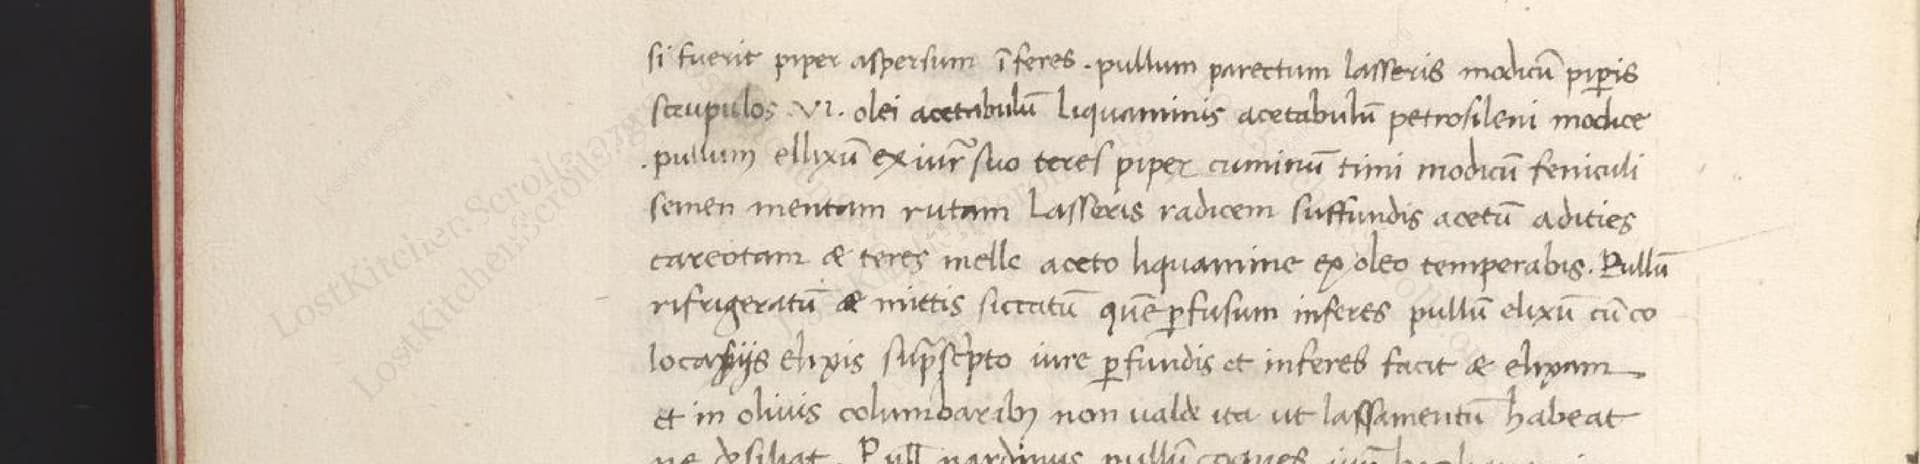 si fuerit piper aspersum īferes . pullum parectum lasseris modicū pip̄is
scrupulos .VI. olei acetabulū liquaminis acetabulū petrosileni modice
. pullum ellixū ex iur̄ suo teres piper cuminū timi modicū feniculi
semen mentam rutam Lasseris radicem suffundis acetū adities
careotam & teres melle aceto liquamine ex oleo temperabis . Pullū
rifrigeratū & mittis siccatū quē ꝑfusum inferes pullū elixū cū co
locasijs elixis sup̄sc̄pto iure ꝑfundis et inferes facit & elixam
et in oliuis columbaribꝫ non ualde ita ut lassamentū habeat
ne desiliat . Pull
LostKitchenScrolls.org
LostKitchenScrolls.org